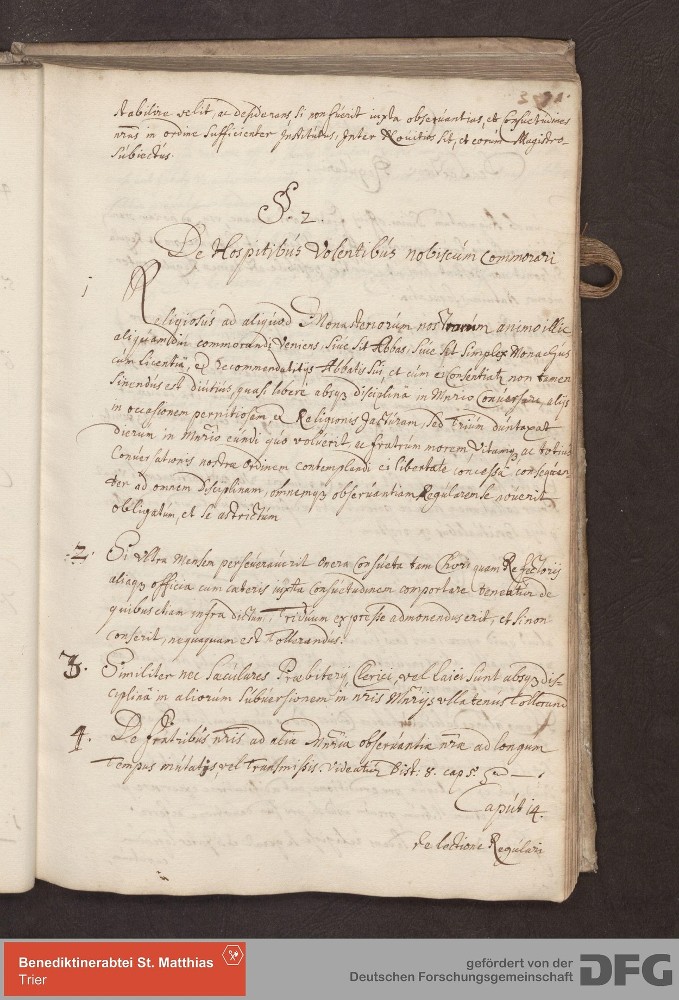 stabilire velit, ac desiderans si non fuerit iuxta observantias, et Consuetudines
nr̃as in ordine sufficienter Institutus, Inter Novitios sit, et eorum Magistro
Subiectus.
§. 2.
De Hospitibus Volentibus nobiscum Commorari
1
Religiosus ad aliquod Monasteriorum nostrorum animo illic
aliquamdiu commorandi veniens, sive sit Abbas, sive sit simplex Monachus
cum licentia, et recommendatitijs Abbatis sui, et cum ei consentiat, non tamen
sinendus est diutius, quasi libere absq3 disciplina in Mnr̃io Conversare, alijs
in occasionem pernitiosam, et Religionis Jacturam, sed Trium duntaxat
dierum in Mnr̃io eundi quo voluerit, ac fratrum morem Vitamq3 ac totius
Conversationis nostræ ordinem contemplandi ei libertate concessa consequen-
ter ad omnem disciplinam, omnemq3 observantiam Regularem se noverit
obligatum, et se astrictum
2. Si ultra Mensem perseveraverit onera Consueta tam Chori quam Refectorij
aliaq3 officia cum cæteris iuxta Consuetudinem comportare teneatur de
quibus etiam infra dictum, Triduum expresse admonendus erit, et si non
conserit, nequaquam est Tollerandus.
3. Similiter nec Sæculares Præbiteri, Clerici, vel laici sunt absq3 dis-
ciplina in aliorum Subversionem in nr̃is Mnr̃ijs ullatenus Tollerandi
4. De fratribus nr̃is ad alia Mnr̃ia observantiæ nr̃æ ad longum
Tempus mutatis, vel transmissis. Videatur Dist: 8. cap 5.
Caput 14.
de lectione Regulari
Benediktinerabtei St. Matthias
Trier
gefördert von der
Deutschen Forschungsgemeinschaft
DFG